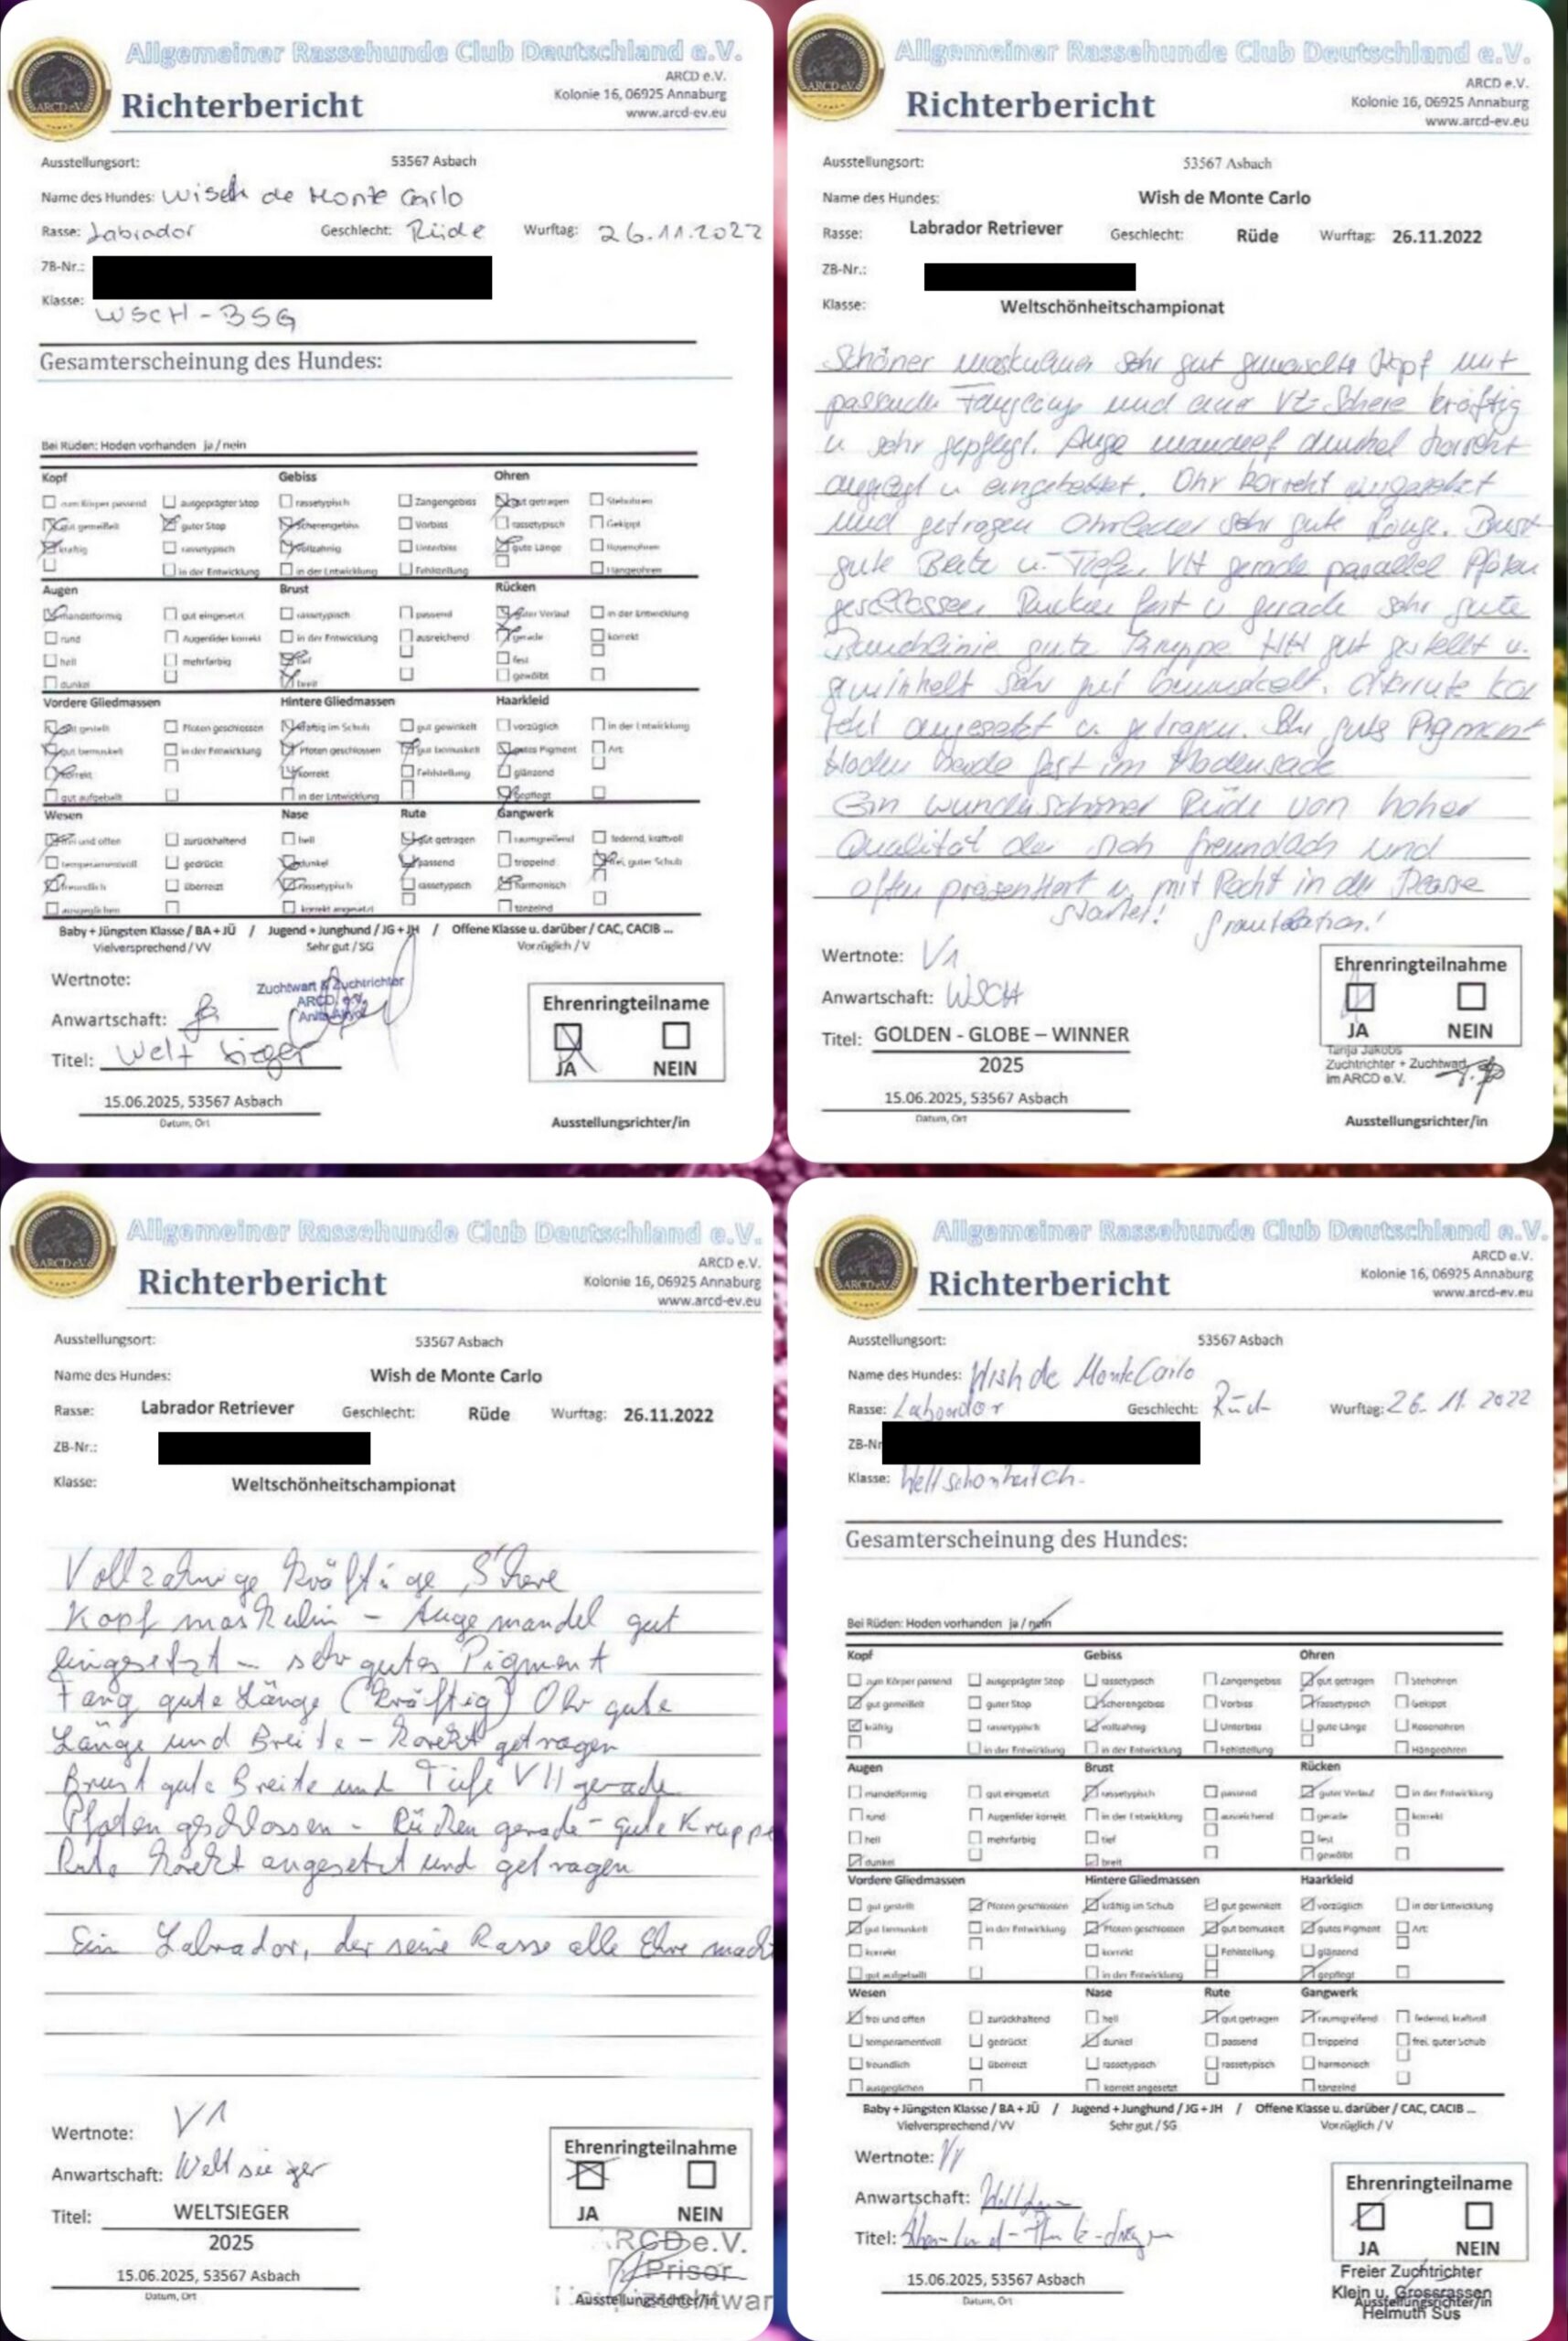 Allgemeiner Rassehunde Club Deutschland e.V.
ARCD e.V.
Richterbericht
ARCD e.V.
Kolonie 16, 06925 Annaburg
www.arcd-ev.eu
Ausstellungsort: 53567 Asbach
Name des Hundes: Wisch de Monte Carlo
Rasse: Labrador Geschlecht: Rüde Wurftag: 26.11.2022
ZB-Nr.:
Klasse: WSCH-BSG
Gesamterscheinung des Hundes:
Bei Rüden: Hoden vorhanden ja / nein
Kopf Gebiss Ohren
zum Körper passend ausgeprägter Stop rassetypisch Zangengebiss gut getragen Stehohren
gut gemeißelt guter Stop Scherengebiss Vorbiss rassetypisch Gekippt
kräftig rassetypisch vollzahnig Unterbiss gute Länge Rosenohren
in der Entwicklung in der Entwicklung Fehlstellung Hängeohren
Augen Brust Rücken
mandelförmig gut eingesetzt rassetypisch passend guter Verlauf in der Entwicklung
rund Augenlider korrekt in der Entwicklung ausreichend gerade korrekt
hell mehrfarbig tief fest
dunkel breit gewölbt
Vordere Gliedmassen Hintere Gliedmassen Haarkleid
gut gestellt Pfoten geschlossen kräftig im Schub gut gewinkelt vorzüglich in der Entwicklung
gut bemuskelt in der Entwicklung Pfoten geschlossen gut bemuskelt gutes Pigment Art:
korrekt korrekt Fehlstellung glänzend
gut aufgebaut in der Entwicklung gepflegt
Wesen Nase Rute Gangwerk
frei und offen zurückhaltend hell gut getragen raumgreifend federnd, kraftvoll
temperamentvoll gedrückt dunkel passend trippelnd frei, guter Schub
freundlich überreizt rassetypisch rassetypisch harmonisch
ausgeglichen korrekt angesetzt tänzelnd
Baby + Jüngsten Klasse / BA + JÜ / Jugend + Junghund / JG + JH / Offene Klasse u. darüber / CAC, CACIB ...
Vielversprechend / VV Sehr gut / SG Vorzüglich / V
Wertnote:
Zuchtwart & Zuchtrichter
ARCD e.V.
Anwartschaft:
Titel: Welt Sieger
Ehrenringteilname
JA NEIN
15.06.2025, 53567 Asbach
Datum, Ort
Ausstellungsrichter/in
Allgemeiner Rassehunde Club Deutschland e.V.
ARCD e.V.
Richterbericht
ARCD e.V.
Kolonie 16, 06925 Annaburg
www.arcd-ev.eu
Ausstellungsort: 53567 Asbach
Name des Hundes: Wish de Monte Carlo
Rasse: Labrador Retriever Geschlecht: Rüde Wurftag: 26.11.2022
ZB-Nr.:
Klasse: Weltschönheitschampionat
Schöner maskuliner sehr gut Kopf mit
und Schere kräftig
u sehr gepflegt. Auge dunkel
u eingebettet. Ohr korrekt
und getragen sehr gute Länge. Brust
gute Breite u. Tiefe, VH gerade parallel Pfoten
geschlossen. Rücken fest u gerade sehr gute
gute Kruppe HH gut gestellt u.
gewinkelt sehr gut bemuskelt.
angesetzt u. getragen. Sehr gutes Pigment
Hoden beide fest im Hodensack
Ein wunderschöner Rüde von hoher
Qualität der sich freundlich und
offen präsentiert u. mit Recht in der Klasse
startet! Gratulation!
Wertnote: V1
Anwartschaft: WSCH
Titel: GOLDEN - GLOBE – WINNER
2025
Ehrenringteilnahme
JA NEIN
Tanja Jakobs
Zuchtrichter + Zuchtwart
im ARCD e.V.
15.06.2025, 53567 Asbach
Datum, Ort
Ausstellungsrichter/in
Allgemeiner Rassehunde Club Deutschland e.V.
ARCD e.V.
Richterbericht
ARCD e.V.
Kolonie 16, 06925 Annaburg
www.arcd-ev.eu
Ausstellungsort: 53567 Asbach
Name des Hundes: Wish de Monte Carlo
Rasse: Labrador Retriever Geschlecht: Rüde Wurftag: 26.11.2022
ZB-Nr.:
Klasse: Weltschönheitschampionat
Vollzahnige kräftige Schere
Kopf maskulin – Auge mandel gut
eingesetzt – sehr gutes Pigment
Fang gute Länge (kräftig) Ohr gute
Länge und Breite – korekt getragen
Brust gute Breite und Tiefe VH gerade
Pfoten geschlossen – Rücken gerade – gute Kruppe
Rute korekt angesetzt und getragen
Ein Labrador, der seine Rasse alle Ehre mach
Wertnote: V1
Anwartschaft: Weltsieger
Titel: WELTSIEGER
2025
Ehrenringteilnahme
JA NEIN
ARCD e.V.
Prisor
15.06.2025, 53567 Asbach
Datum, Ort
Ausstellungsrichter/in
Allgemeiner Rassehunde Club Deutschland e.V.
ARCD e.V.
Richterbericht
ARCD e.V.
Kolonie 16, 06925 Annaburg
www.arcd-ev.eu
Ausstellungsort: 53567 Asbach
Name des Hundes: Wish de Monte Carlo
Rasse: Labrador Geschlecht: Rüde Wurftag: 26.11.2022
ZB-Nr
Klasse: Weltschönheitch.
Gesamterscheinung des Hundes:
Bei Rüden: Hoden vorhanden ja / nein
Kopf Gebiss Ohren
zum Körper passend ausgeprägter Stop rassetypisch Zangengebiss gut getragen Stehohren
gut gemeißelt guter Stop Scherengebiss Vorbiss rassetypisch Gekippt
kräftig rassetypisch vollzahnig Unterbiss gute Länge Rosenohren
in der Entwicklung in der Entwicklung Fehlstellung Hängeohren
Augen Brust Rücken
mandelförmig gut eingesetzt rassetypisch passend guter Verlauf in der Entwicklung
rund Augenlider korrekt in der Entwicklung ausreichend gerade korrekt
hell mehrfarbig tief fest
dunkel breit gewölbt
Vordere Gliedmassen Hintere Gliedmassen Haarkleid
gut gestellt Pfoten geschlossen kräftig im Schub gut gewinkelt vorzüglich in der Entwicklung
gut bemuskelt in der Entwicklung Pfoten geschlossen gut bemuskelt gutes Pigment Art:
korrekt korrekt Fehlstellung glänzend
gut aufgebaut in der Entwicklung gepflegt
Wesen Nase Rute Gangwerk
frei und offen zurückhaltend hell gut getragen raumgreifend federnd, kraftvoll
temperamentvoll gedrückt dunkel passend trippelnd frei, guter Schub
freundlich überreizt rassetypisch rassetypisch harmonisch
ausgeglichen korrekt angesetzt tänzelnd
Baby + Jüngsten Klasse / BA + JÜ / Jugend + Junghund / JG + JH / Offene Klasse u. darüber / CAC, CACIB ...
Vielversprechend / VV Sehr gut / SG Vorzüglich / V
Wertnote: V1
Anwartschaft:
Titel:
Ehrenringteilname
JA NEIN
15.06.2025, 53567 Asbach
Datum, Ort
Freier Zuchtrichter
Klein u. Grossrassen
Ausstellungsrichter/in
Helmuth Süs